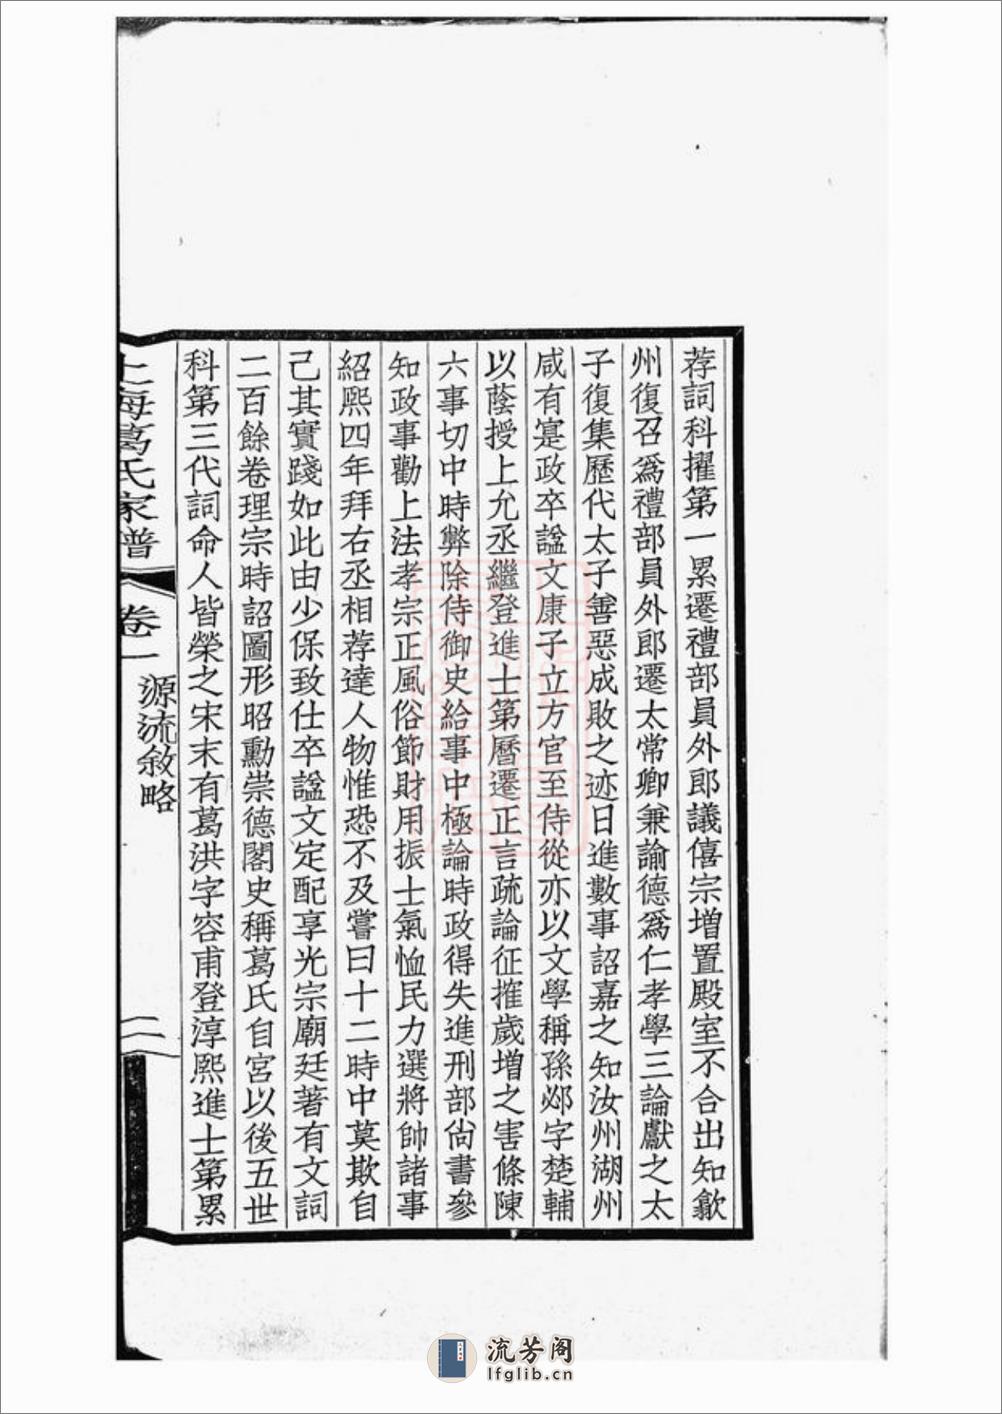 荐詞科擢第一累遷禮部員外郎議僖宗増置殿室不合出知歙
州復召爲禮部員外郎遷太常卿兼諭德爲仁孝學三論獻之太
子復集歷代太子善惡成敗之迹日進數事詔嘉之知汝州湖州
咸有寔政卒諡文康子立方官至侍從亦以文學稱孫邲字楚輔
以蔭授上允丞繼登進士第曆遷正言疏論征搉歲增之害條陳
六事切中時弊除侍御史給事中極論時政得失進刑部尙書參
知政事勸上法孝宗正風俗節財用振士氣恤民力選將帥諸事
紹熙四年拜右丞相荐達人物惟恐不及嘗曰十二時中莫欺自
己其實踐如此由少保致仕卒諡文定配享光宗廟廷著有文詞
二百餘卷理宗時詔圖形昭勳崇德閣史稱葛氏自宮以後五世
科第三代詞命人皆榮之宋末有葛洪字容甫登淳熙進士第累
上海葛氏家譜 卷一 源流敘略 二
流芳阁
lfglib.cn